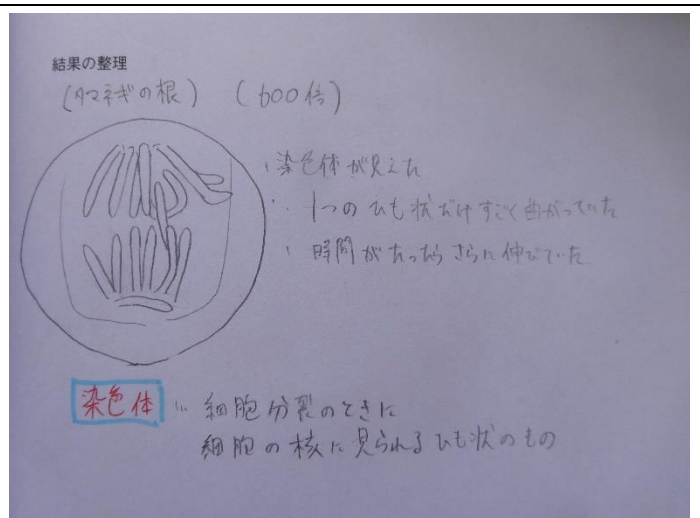 結果の整理
(タマネギの根) (600倍)
・染色体が見えた
・1つのひも状だけすごく曲がっていた
・時間がたったらさらに伸びていた
染色体 … 細胞分裂のときに
細胞の核に見られるひも状のもの